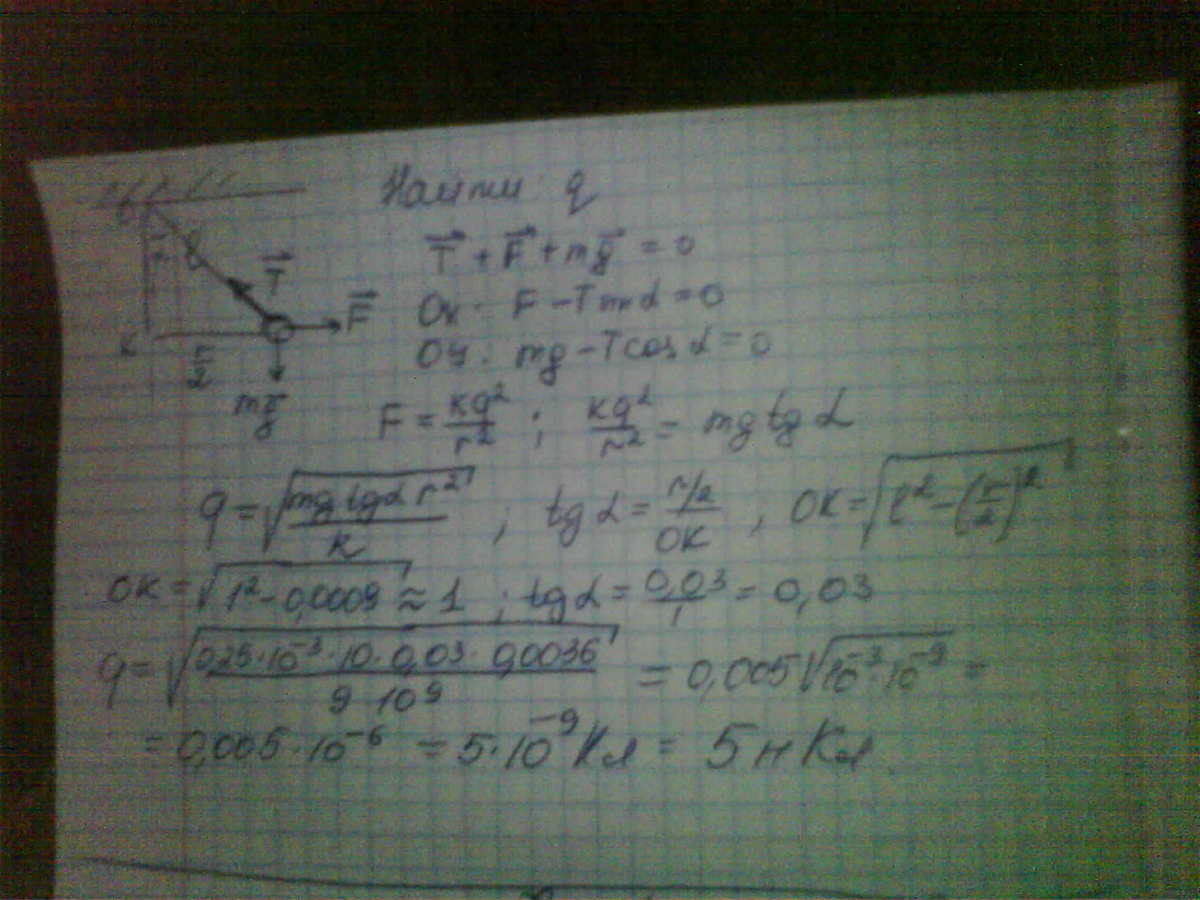 Найти q
T⃗ + F⃗ + mg⃗ = 0
Ox: F - T sin α = 0
Oy: mg - T cos α = 0
O α l
T⃗
F⃗
K r/2
mg⃗
F = kq²/r² ; kq²/r² = mg tg α
q = √(mg tg α r²/k) ; tg α = (r/2)/OK , OK = √(l² - (r/2)²)
OK = √(1² - 0,0009) ≈ 1 ; tg α = 0,03/1 = 0,03
q = √(0,25·10⁻³·10·0,03·0,0036/9·10⁹) = 0,005√(10⁻³·10⁻⁹) =
= 0,005·10⁻⁶ = 5·10⁻⁹ Кл = 5 нКл